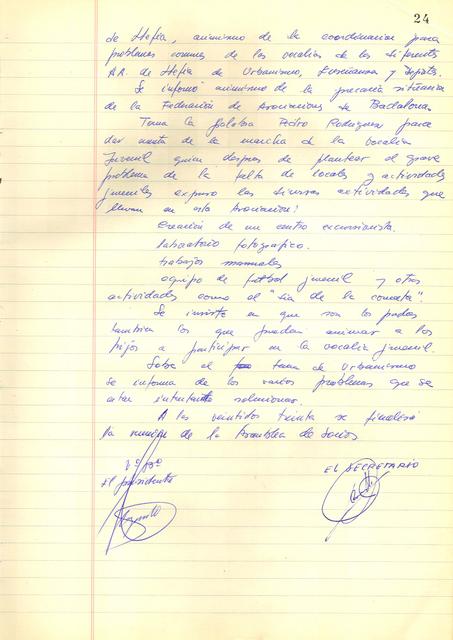 24
de Llefia, asimismo de la coordinacion para
problemas comunes de las vocalias de las diferentes
AA. de Llefia de Urbanismo, Enseñanza y Deportes.
Se informó asimismo de la precaria situacion
de la Federación de Asociaciones de Badalona.
Toma la palabra Pedro Rodriguez para
dar cuenta de la marcha de la vocalia
Juvenil quien despues de plantear el grave
problema de la falta de locales y actividades
juveniles expuso las diversas actividades que
llevan en esta Asociacion:
Creacion de un centro excursionista.
laboratorio fotografico.
trabajos manuales
equipo de futbol juvenil y otras
actividades como el "dia de la cometa".
Se insiste en que son los padres
tambien los que puedan animar a los
hijos a participar en la vocalia juvenil.
Sobre el tema de Urbanismo
se informa de los varios problemas que se
estan intentando solucionar.
A las veintidos treinta se finalizó
la reunion de la Asamblea de Socios
Vº Bº
El presidente
EL SECRETARIO